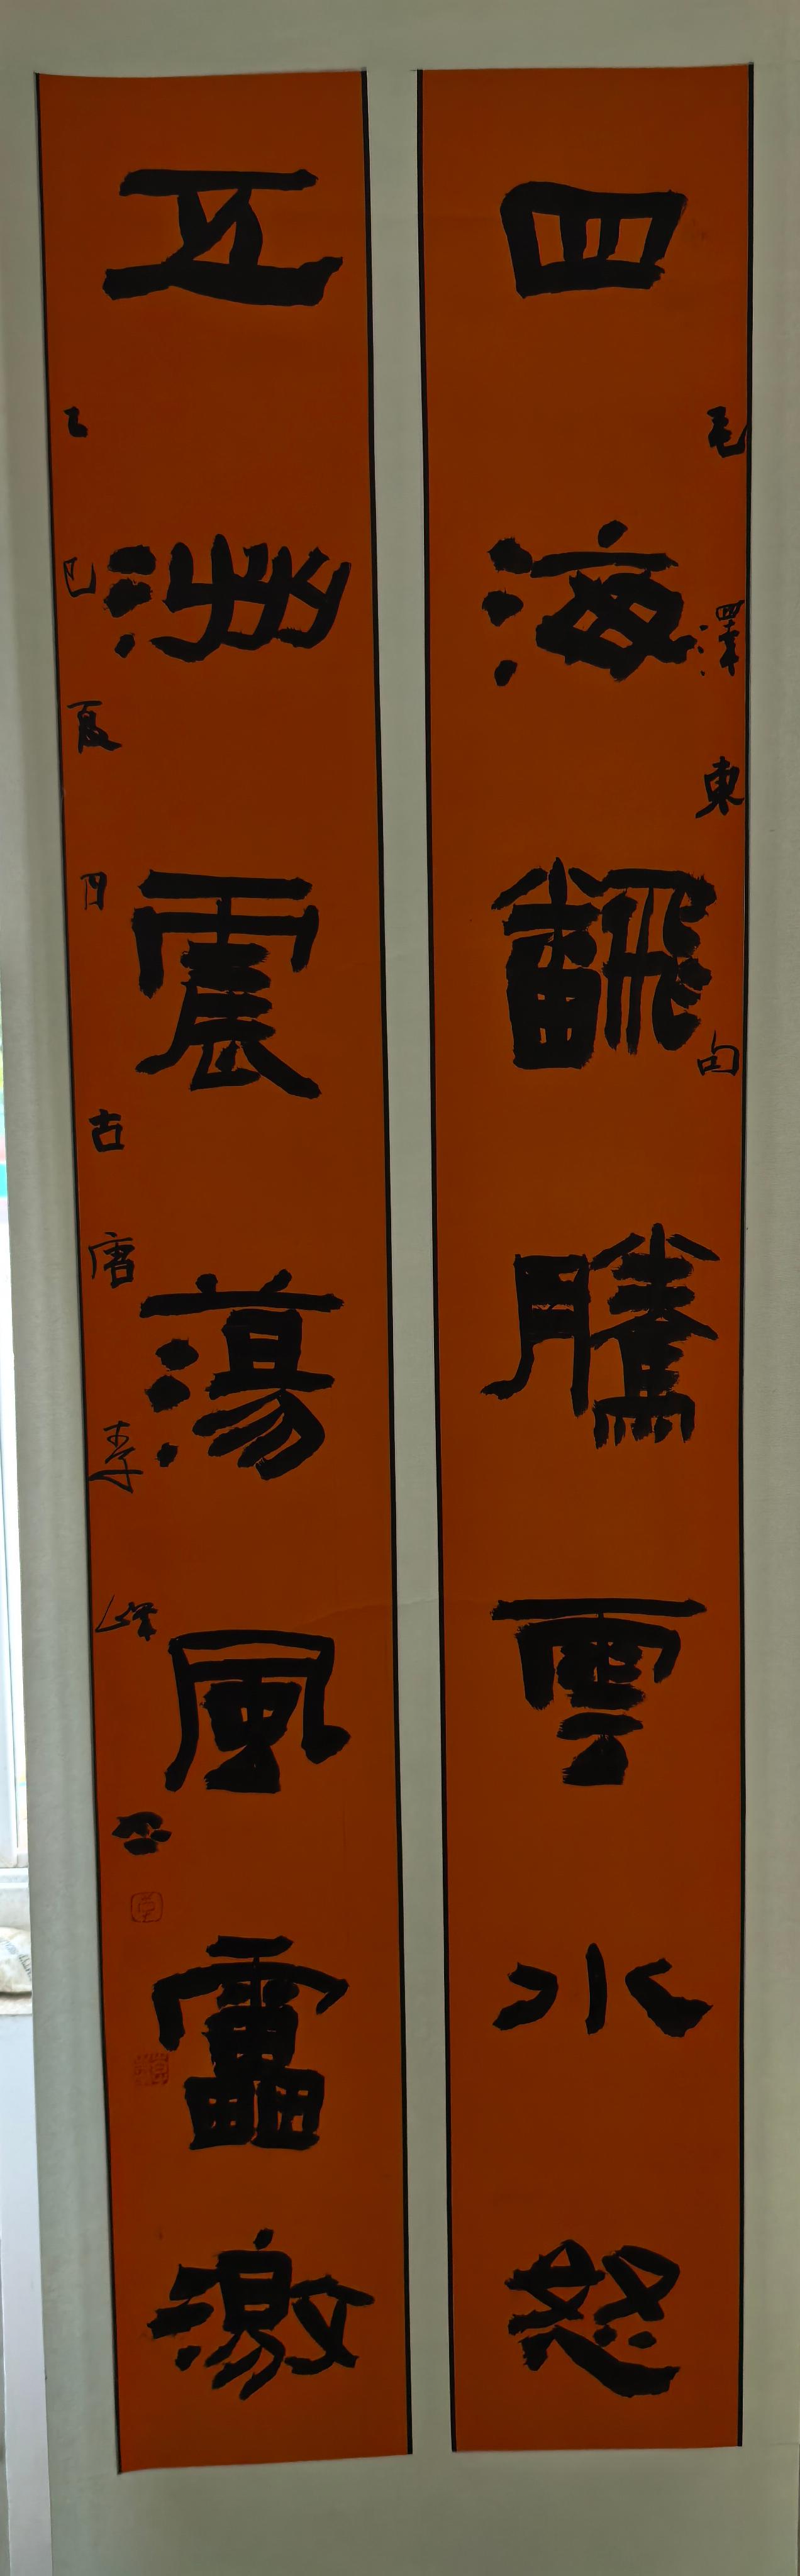 毛澤東句
四海飜騰雲水怒
五洲震蕩風靁激
乙巳夏月古唐李峰